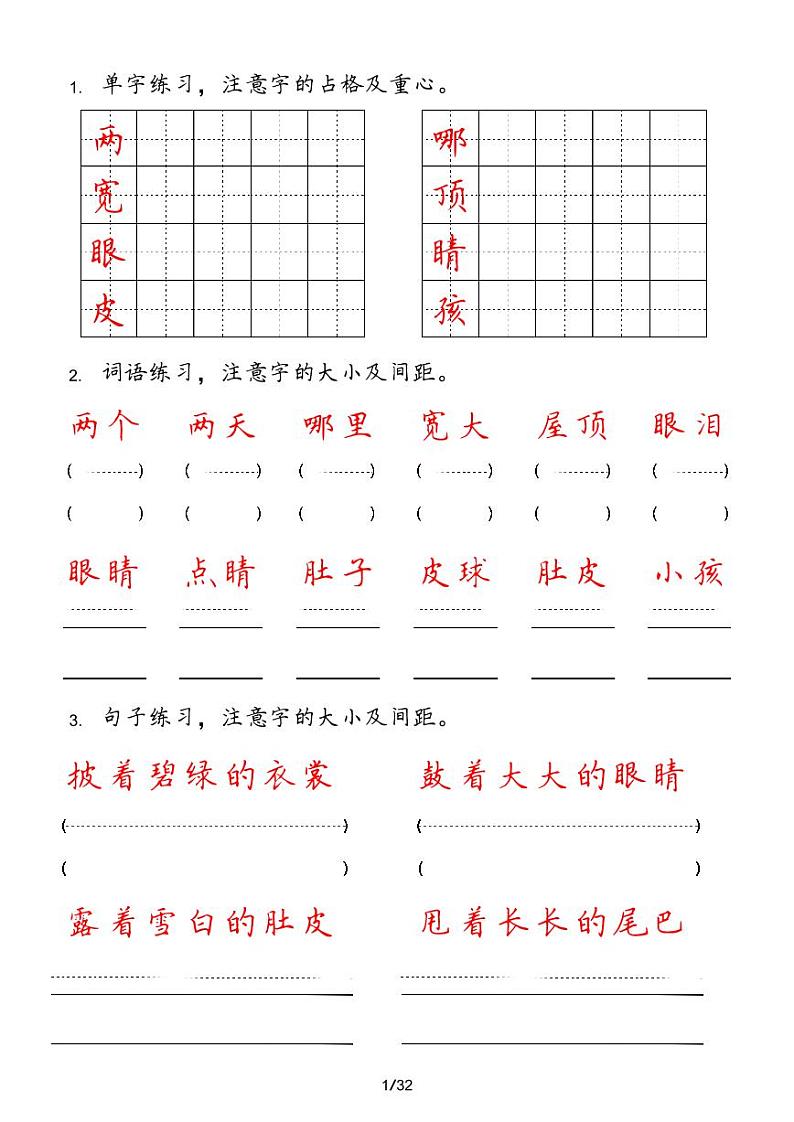 1. 单字练习，注意字的占格及重心。
两 哪
宽 顶
眼 睛
皮 孩
2. 词语练习，注意字的大小及间距。
两个 两天 哪里 宽大 屋顶 眼泪
( ) ( ) ( ) ( ) ( ) ( )
( ) ( ) ( ) ( ) ( ) ( )
眼睛 点睛 肚子 皮球 肚皮 小孩
3. 句子练习，注意字的大小及间距。
披着碧绿的衣裳 鼓着大大的眼睛
( ) ( )
( ) ( )
露着雪白的肚皮 甩着长长的尾巴
1/32